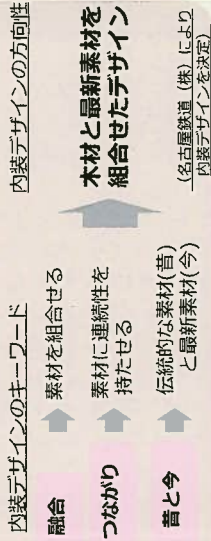 内装デザインのキーワード
融合
素材を組合せる
つながり
素材に連続性を
持たせる
昔と今
伝統的な素材(昔)
と最新素材(今)
内装デザインの方向性
木材と最新素材を
組合せたデザイン
(名古屋鉄道（株）により
内装デザインを決定)